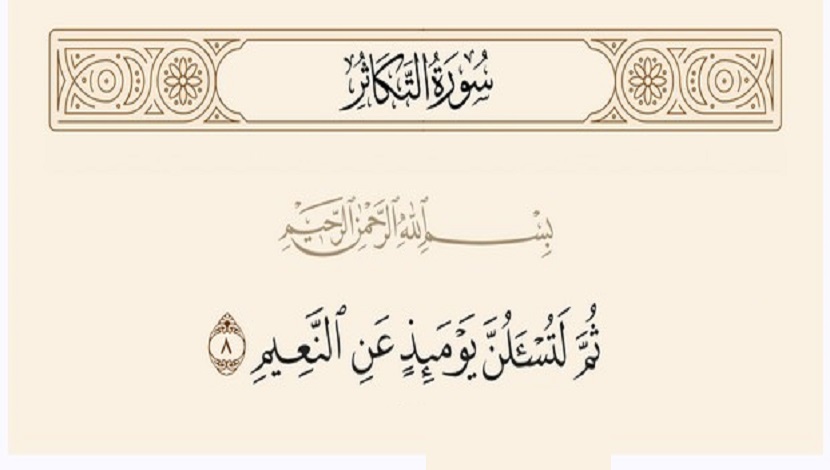 سُورَةُ التَّكَاثُرِ
بِسْمِ ٱللَّهِ ٱلرَّحْمَٰنِ ٱلرَّحِيمِ
ثُمَّ لَتُسْـَٔلُنَّ يَوْمَئِذٍ عَنِ ٱلنَّعِيمِ ٨